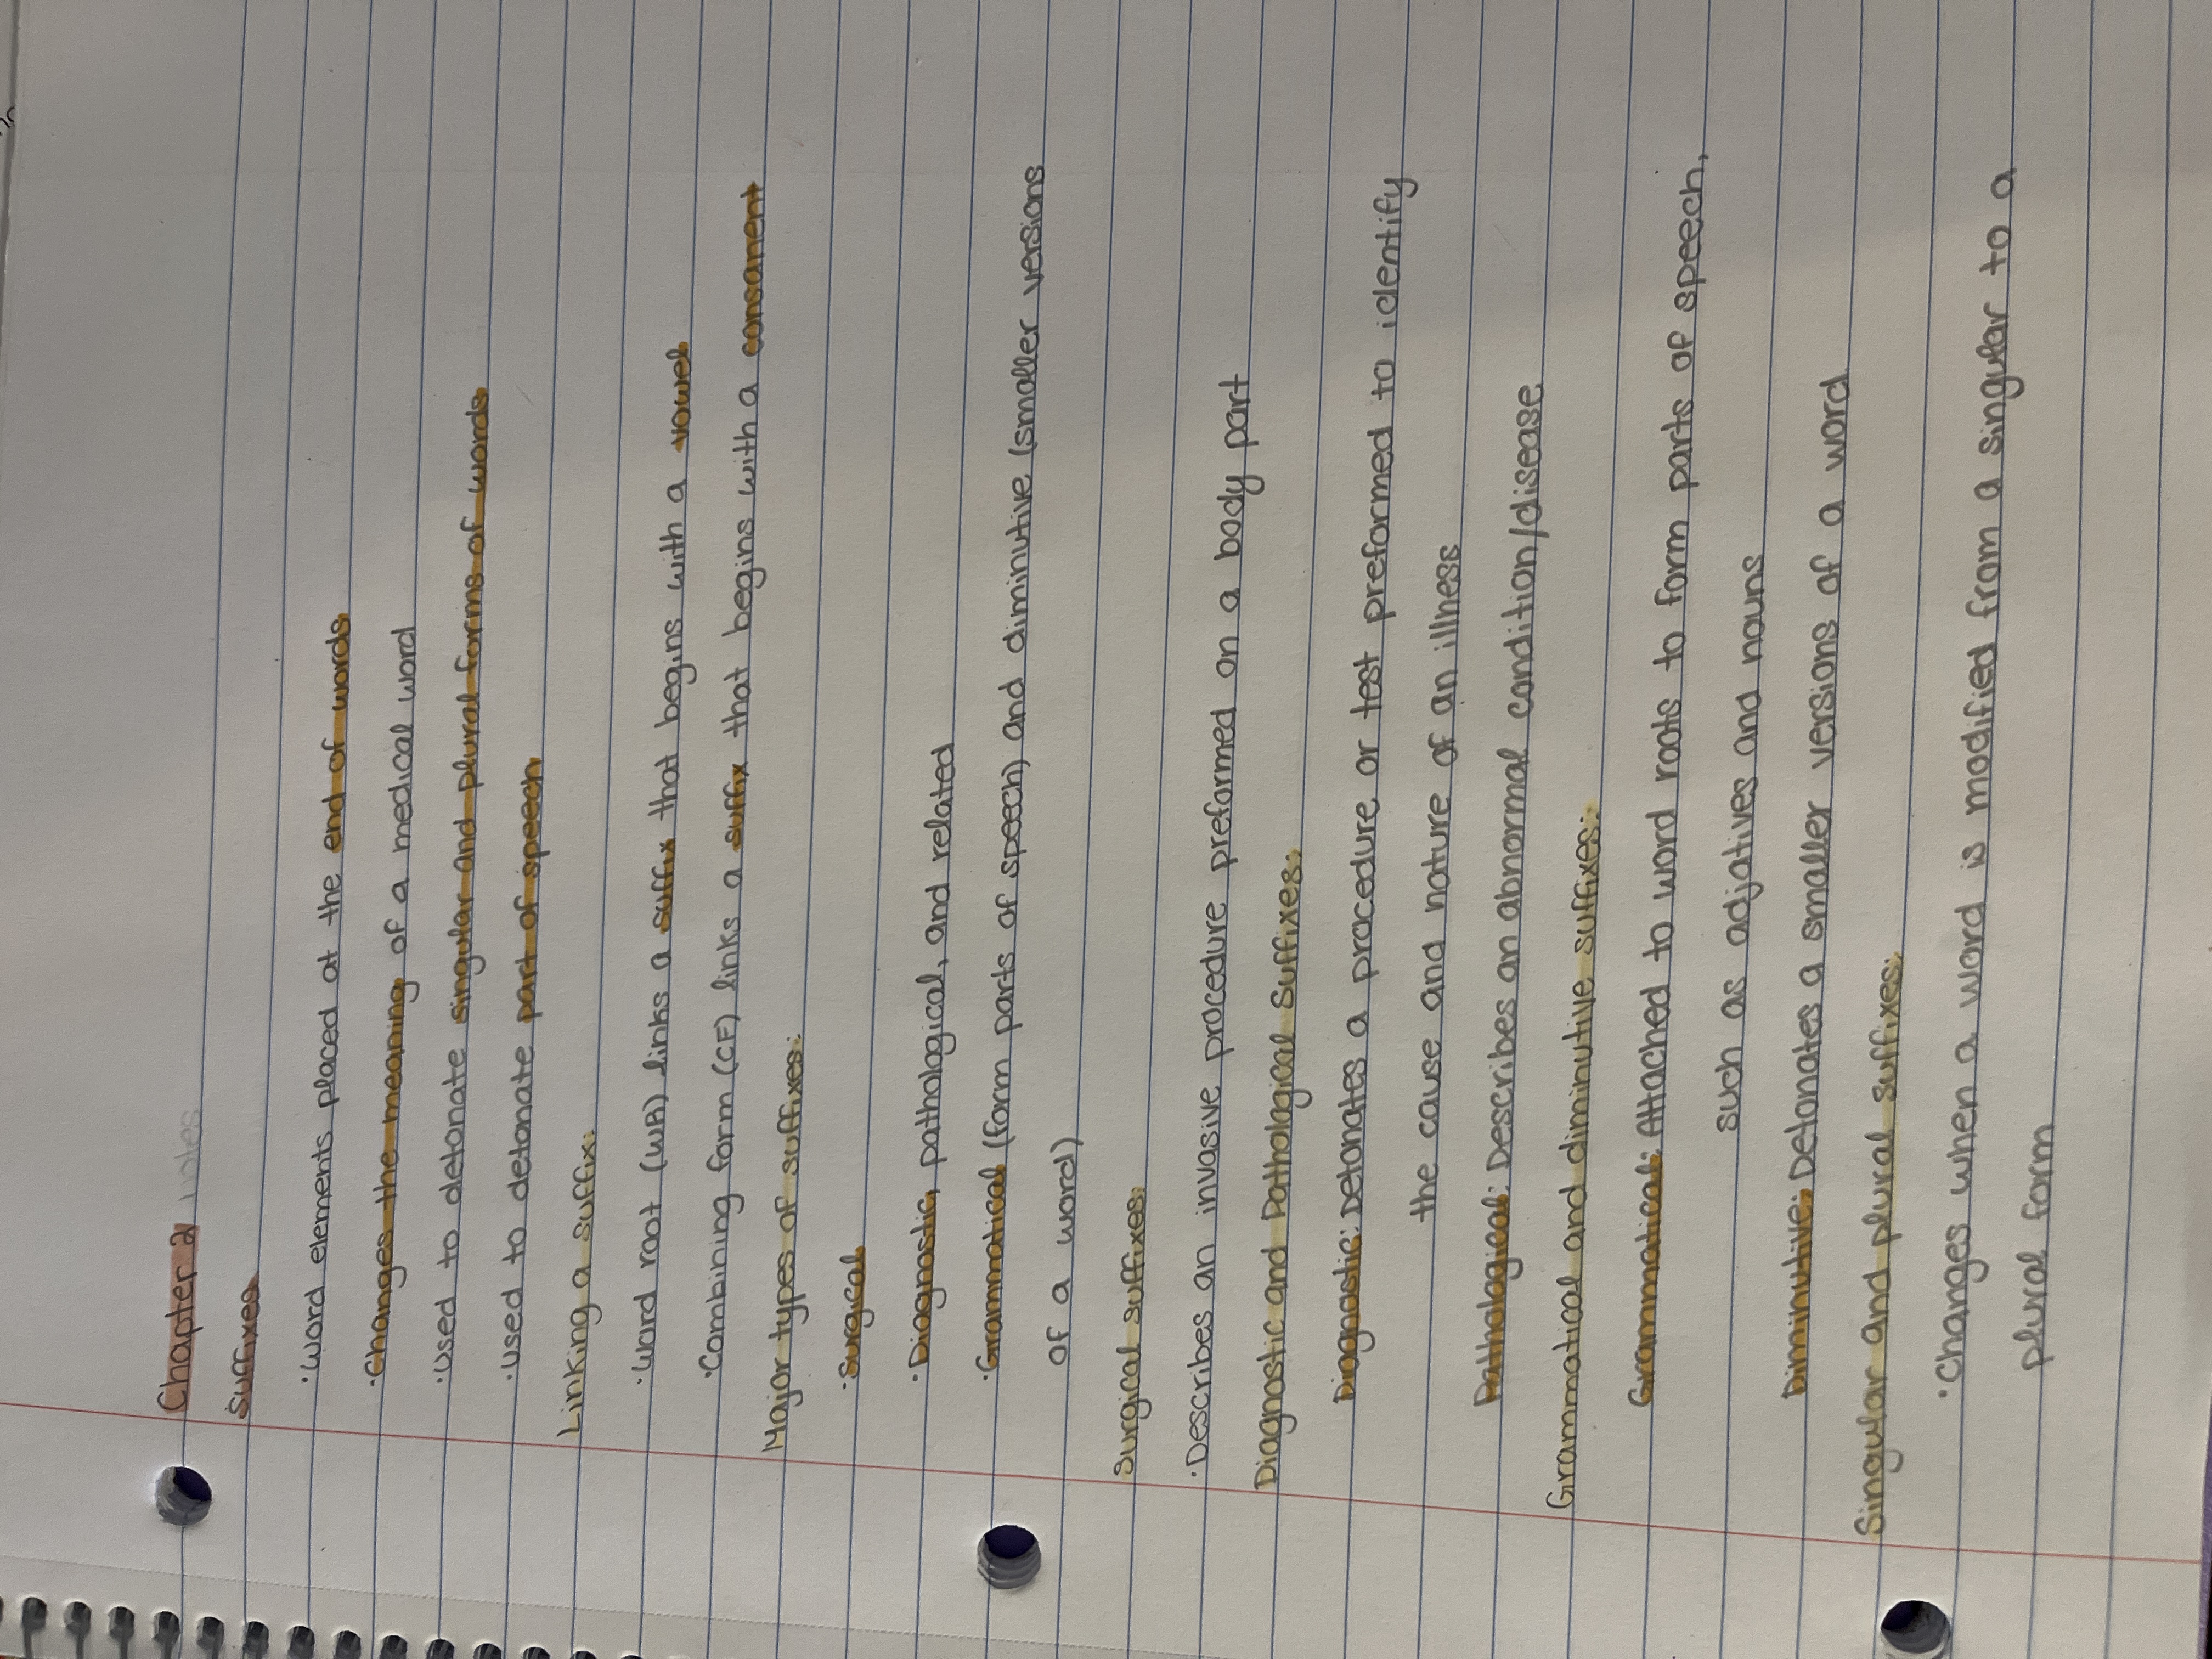 Chapter 2 notes
Suffixes
·Word elements placed at the end of words
·Changes the meaning of a medical word
·Used to detonate singular and plural forms of words
·Used to detonate part of speech
Linking a suffix:
·Word root (WR) links a suffix that begins with a vowel
·Combining form (CF) links a suffix that begins with a consanent
Major types of suffixes:
·Surgical
·Diagnostic, pathological, and related
·Grammatical (form parts of speech) and diminutive (smaller versions
of a word)
Surgical suffixes:
·Describes an invasive procedure preformed on a body part
Diagnostic and Pathological Suffixes:
Diagnostic: Detonates a procedure or test preformed to identify
the cause and nature of an illness
Pathological: Describes an abnormal condition/disease
Grammatical and diminutive suffixes:
Grammatical: Attached to word roots to form parts of speech,
such as adjatives and nouns
Diminutive: Detonates a smaller versions of a word
Singular and plural suffixes:
·Changes when a word is modified from a singular to a
plural form